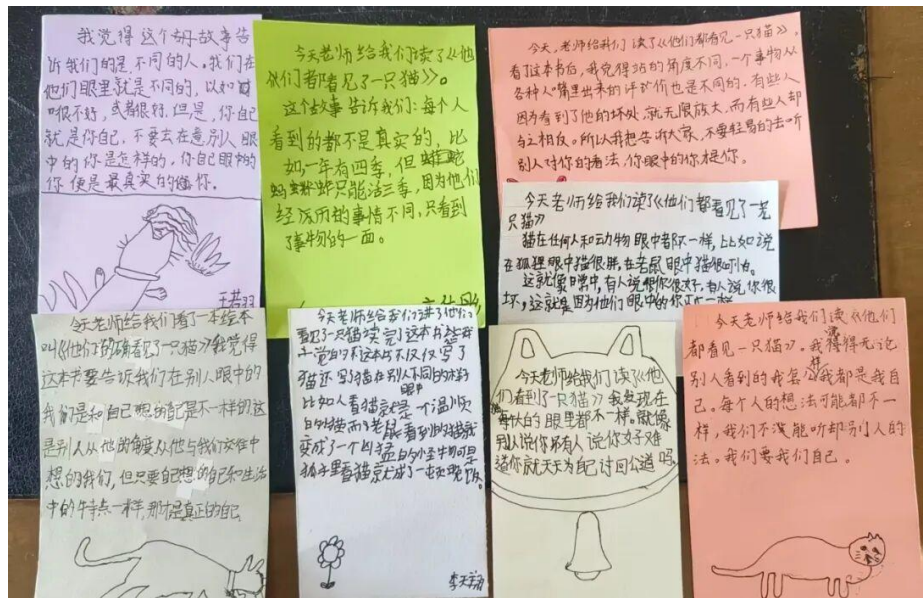 我觉得这个故事告
诉我们的是,不同的人。我们在
他们眼里就是不同的,以如
很不好,或者很好。但是,你自己
就是你自己,不要去在意别人眼
中的你是怎样的,你自己眼中的
你便是最真实的你。
王若羽
今天老师给我们读了《他
们都看见了一只猫》。
这个故事告诉我们:每个人
看到的都不是真实的,比
如,一年有四季,但
蚂蚱只能活三季,因为他们
经历的事情不同,只看到
了事物的一面。
今天,老师给我们读了《他们都看见一只猫》。
看了这本书后,我觉得站的角度不同,一个事物从
各种人嘴里出来的评价也是不同的。有些人
因为看到了他的坏处,就无限放大,而有些人却
与之相反。所以我想告诉大家,不要轻易的去听
别人对你的看法,你眼中的你才是你。
今天老师给我们读了《他们都看见了一
只猫》
猫在任何人和动物眼中都不一样,比如说
在狐狸眼中猫很胖,在老鼠眼中猫很可怕。
这就像日常中,有人说你很好,有人说你很
坏,这就是因为他们眼中的你不一样。
今天老师给我们看了一本绘本
叫《他们的确看见了一只猫》我觉得
这本书要告诉我们在别人眼中的
我们是和自己想的自己是不一样的这
是别人从他的角度从他与我们交往中
想的我们,但只要自己想的自己和生活
中的特点一样,那才是真正的自己
今天老师给我们讲了他们
看见了一只猫读完了这本书
觉的这本书不仅仅写了
猫还写了猫在别人不同的眼中
比如人看猫就是一个温顺
的猫而老鼠看到的猫就
变成了一个凶猛的怪物可是
狐狸看猫就成了一顿晚饭。
李天
今天老师给我们读了《他
们看到了一只猫》我发现在
每个人的眼里都不一样。就像
别人说你坏有人说你好难
道你就天天为自己讨回公道吗
今天老师给我们读《他们
都看见一只猫》。我觉得无论
别人看到的我怎么样我都是我自
己。每个人的想法可能都不一
样,我们不能听却别人的
法。我们要我们自己。